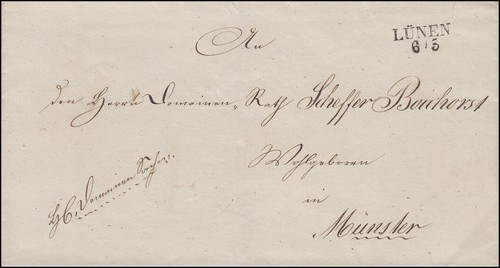 LÜNEN
6/5
An
den Herrn Domainen-Rath Scheffer Boichorst
Wohlgeboren
in
Münster
Domainen Sache.